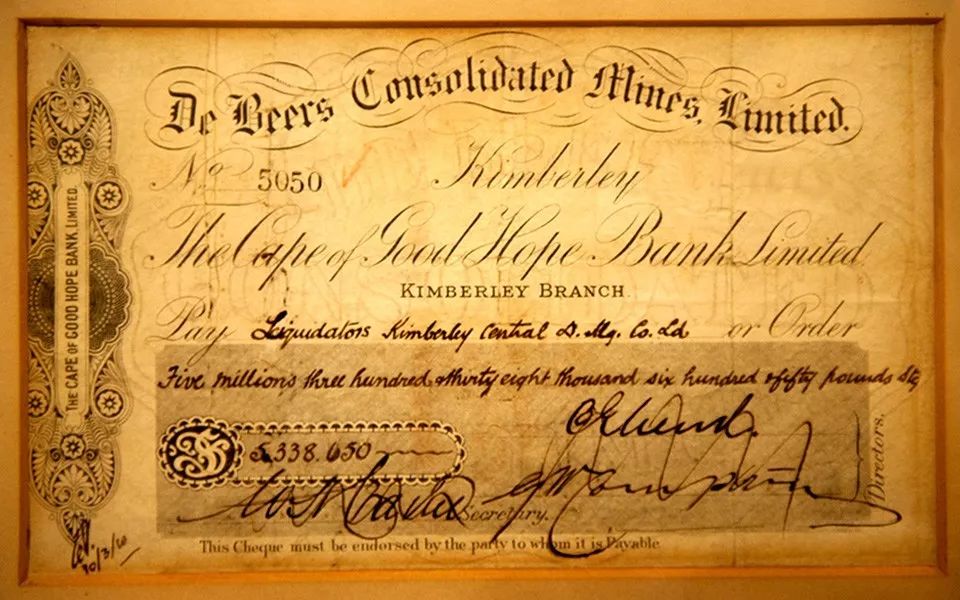 De Beers Consolidated Mines, Limited.
No 5050 Kimberley
The Cape of Good Hope Bank Limited
KIMBERLEY BRANCH.
Pay Liquidators Kimberley Central D. Mg. Co. Ld or Order
Five millions three hundred & thirty eight thousand six hundred & fifty pounds Stg
£ 5,338.650
Secretary.
Directors.
This Cheque must be endorsed by the party to whom it is Payable
THE CAPE OF GOOD HOPE BANK LIMITED.